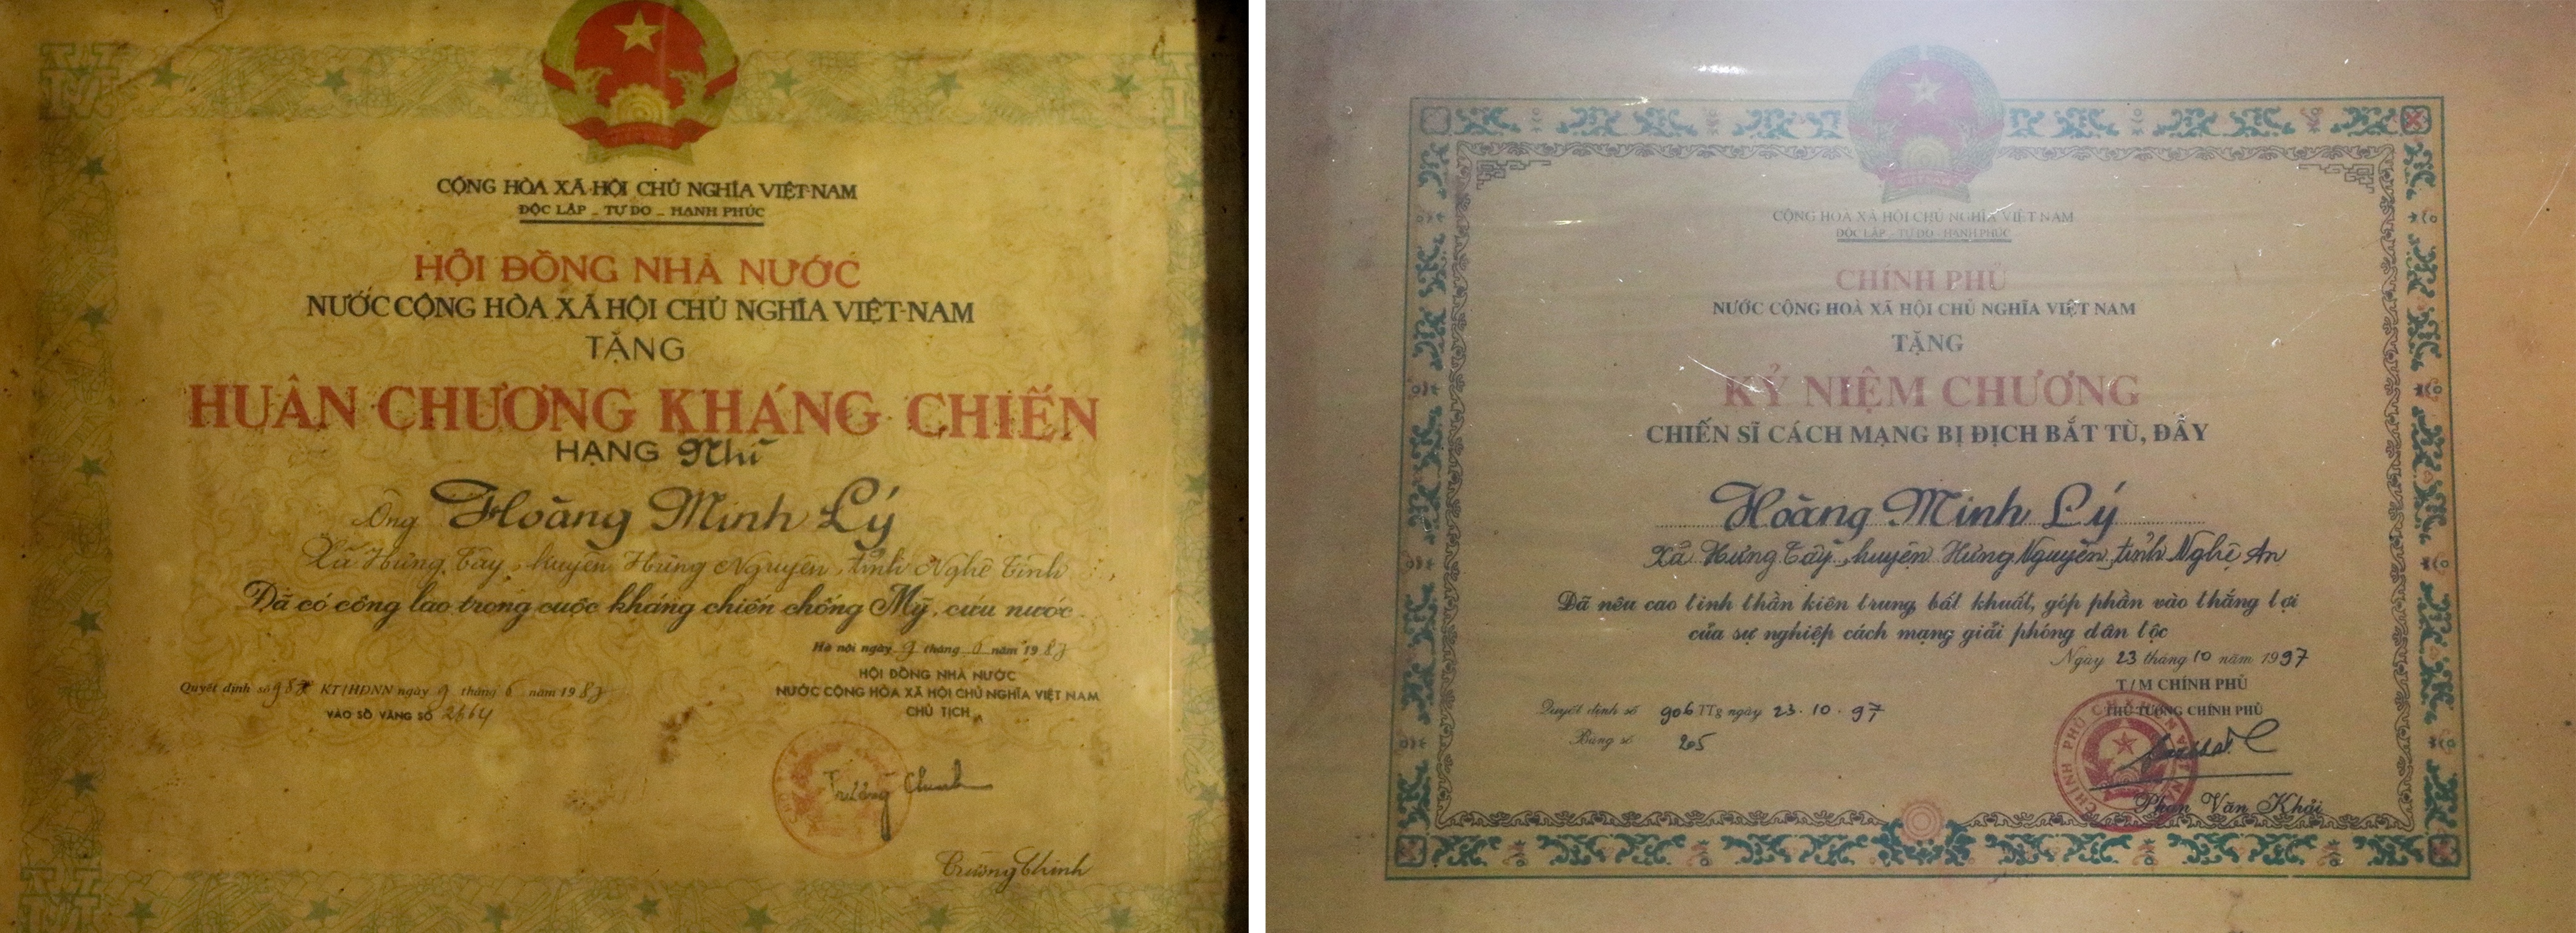 CỘNG HÒA XÃ HỘI CHỦ NGHĨA VIỆT-NAM
ĐỘC LẬP - TỰ DO - HẠNH PHÚC
HỘI ĐỒNG NHÀ NƯỚC
NƯỚC CỘNG HÒA XÃ HỘI CHỦ NGHĨA VIỆT-NAM
TẶNG
HUÂN CHƯƠNG KHÁNG CHIẾN
HẠNG Nhì
Ông Hoàng Minh Lý
Xã Hưng Tây, huyện Hưng Nguyên, tỉnh Nghệ Tĩnh
Đã có công lao trong cuộc kháng chiến chống Mỹ, cứu nước.
Hà nội ngày 9 tháng 6 năm 1987
HỘI ĐỒNG NHÀ NƯỚC
NƯỚC CỘNG HÒA XÃ HỘI CHỦ NGHĨA VIỆT NAM
CHỦ TỊCH
Quyết định số KT/HĐNN ngày 9 tháng 6 năm 1987
VÀO SỔ VÀNG SỐ 2664
Trường Chinh
Trường Chinh
CỘNG HOÀ XÃ HỘI CHỦ NGHĨA VIỆT NAM
ĐỘC LẬP - TỰ DO - HẠNH PHÚC
CHÍNH PHỦ
NƯỚC CỘNG HOÀ XÃ HỘI CHỦ NGHĨA VIỆT NAM
TẶNG
KỶ NIỆM CHƯƠNG
CHIẾN SĨ CÁCH MẠNG BỊ ĐỊCH BẮT TÙ, ĐẦY
Hoàng Minh Lý
Xã Hưng Tây, huyện Hưng Nguyên, tỉnh Nghệ An
Đã nêu cao tinh thần kiên trung, bất khuất, góp phần vào thắng lợi
của sự nghiệp cách mạng giải phóng dân tộc
Ngày 23 tháng 10 năm 1997
T/M CHÍNH PHỦ
THỦ TƯỚNG CHÍNH PHỦ
Quyết định số 906 TTg ngày 23.10.97
Bảng số 205
Phan Văn Khải